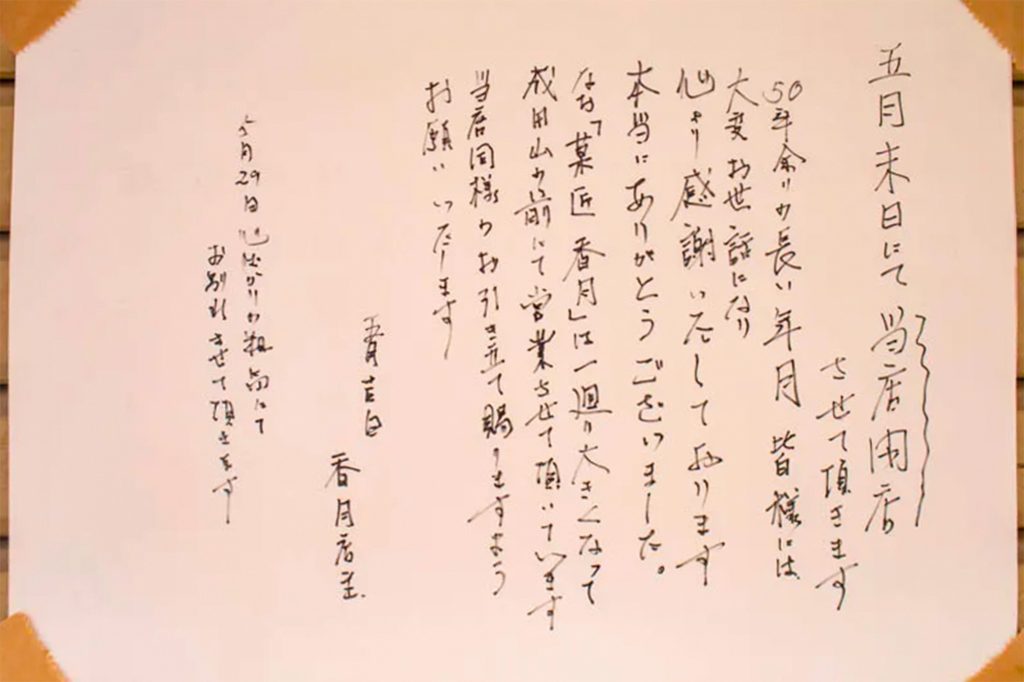 五月末日にて当店閉店
させて頂きます
50年余りの長い年月 皆様には
大変お世話になり
心より感謝いたしております
本当にありがとうございました。
なお「菓匠 香月」は一廻り大きくなって
成田山の前にて営業させて頂いています
当店同様のお引き立て賜りますよう
お願いいたします
五月吉日
香月店主
5月29日心ばかりの粗品にて
お別れさせて頂きます